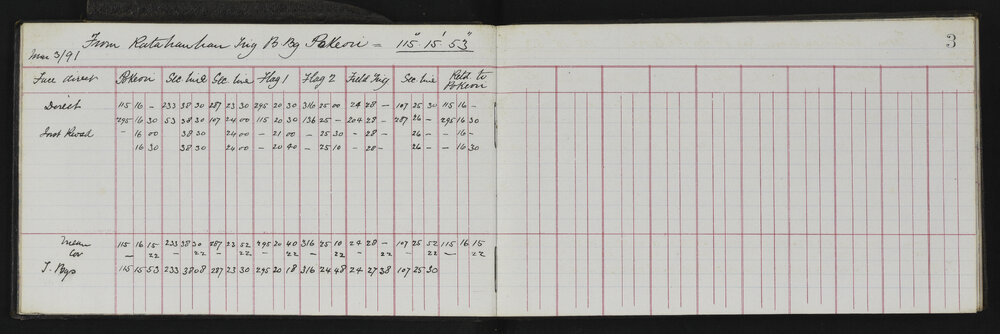 From Ratahauhau Trig B Bg Pokeori = 115° 15' 53"
3
Mar 3/91
Face direct Pokeori Sec line Sec line Flag 1 Flag 2 Field Trig Sec line Retd to Pokeori
Direct 115 16 – 233 38 30 287 23 30 295 20 30 316 25 00 24 28 – 107 25 30 115 16 –
295 16 30 53 38 30 107 24 00 115 20 30 136 25 – 204 28 – 287 26 – 295 16 30
Inst Revsd – 16 00 38 30 24 00 – 21 00 – 25 30 – 28 – 26 – – 16 –
16 30 38 30 24 00 – 20 40 – 25 10 – 28 – 26 – – 16 30
Mean 115 16 15 233 38 30 287 23 52 295 20 40 316 25 10 24 28 – 107 25 52 115 16 15
Cor – 22 – 22 – 22 – 22 – 22 – 22 – 22 – 22
T. Bgs 115 15 53 233 38 08 287 23 30 295 20 18 316 24 48 24 27 38 107 25 30